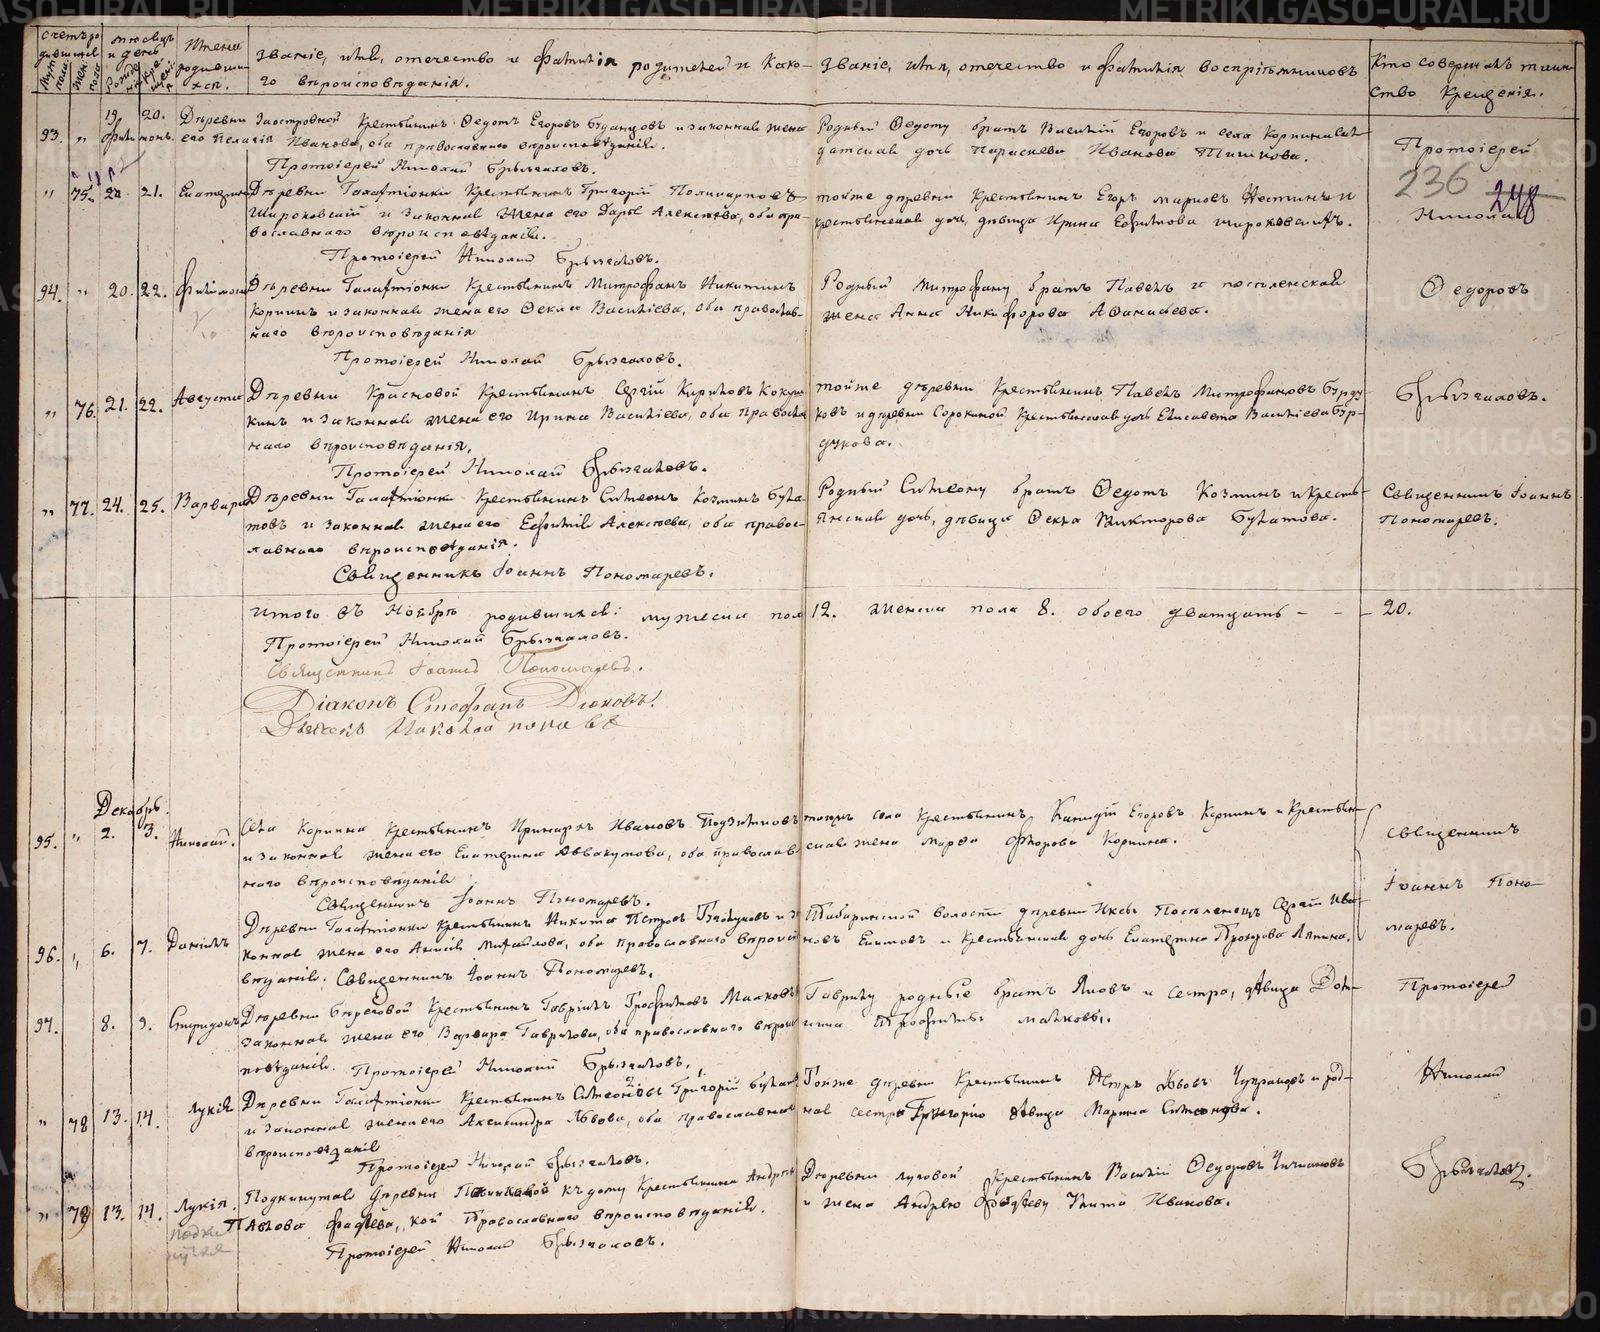 Счетъ родившихся
Мужеска пола.
Женска пола
Мѣсяцъ и день
Рожденія
Крещенія
Имена родившихся.
Званіе, имя, отечество и фамилія родителей и какого вѣроисповѣданія.
Званіе, имя, отечество и фамилія воспріемниковъ
Кто совершалъ таинство крещенія.
93. „ 19. 20.
Филимонъ.
Деревни Заостровной крестьянинъ Ѳедотъ Егоровъ и законная жена
его Пелагія Иванова, оба православнаго вѣроисповѣданія.
Протоіерей Николай Брызгаловъ.
Родный Ѳедоту братъ Василій Егоровъ и села Коркина
дочь Параскева Иванова
Протоіерей
236 248
„ 75. 20 21. Екатерина
Деревни Галактіонки крестьянинъ Григорій Поликарповъ
Широковскій и законная жена его Дарья Алексѣева, оба православнаго вѣроисповѣданія.
Протоіерей Николай Брызгаловъ.
тойже деревни крестьянинъ Егоръ Марковъ и
крестьянская дочь, дѣвица Ирина Ефимова
Николай
94. „ 20. 22. Филимонъ
Деревни Галактіонки крестьянинъ Митрофанъ Никитинъ
Коркинъ и законная жена его Ѳекла Васильева, оба православнаго вѣроисповѣданія
Протоіерей Николай Брызгаловъ.
Родный Митрофану братъ Павелъ и поселенская
жена Анна Никифорова Аѳанасьева.
Ѳедоровъ
„ 76. 21. 22. Августа
Деревни Красновой крестьянинъ Сергій Кириловъ
и законная жена его Ирина Васильева, оба православнаго вѣроисповѣданія.
Протоіерей Николай Брызгаловъ.
тойже деревни крестьянинъ Павелъ Митрофановъ Бурдуковъ и деревни Сорокиной крестьянская дочь Елисавета Васильева Бурдукова.
Брызгаловъ.
„ 77. 24. 25. Варвара
Деревни Галактіонки крестьянинъ Симеонъ Козминъ Булатовъ и законная жена его Евфимія Алексѣева, оба православнаго вѣроисповѣданія.
Священникъ Іоаннъ Пономаревъ.
Родный Симеону братъ Ѳедотъ Козминъ и крестьянская дочь, дѣвица Ѳекла Викторова Булатова.
Священникъ Іоаннъ
Пономаревъ.
Итого въ Ноябрѣ родившихся: мужеска пола 12. женска пола 8. обоего двадцать – – – 20.
Протоіерей Николай Брызгаловъ.
Священникъ Іоаннъ Пономаревъ.
Діаконъ Стефанъ Дюковъ!
Николай
Декабрь.
95. „ 2. 3. Николай.
Села Коркина крестьянинъ Иринархъ Ивановъ
и законная жена его Екатерина Аввакумова, оба православнаго вѣроисповѣданія
Священникъ Іоаннъ Пономаревъ.
тогоже села крестьянинъ Егоровъ Коркинъ и крестьянская жена Марѳа Коркина.
Священникъ
96. „ 6. 7. Даніилъ
Деревни Галактіонки крестьянинъ Никита Петровъ и законная жена его Анисія Михайлова, оба православнаго вѣроисповѣданія. Священникъ Іоаннъ Пономаревъ.
Табаринской волости деревни Иксы поселенецъ Ивановъ Екимовъ и крестьянская дочь Екатерина Прохорова Ляпина.
Іоаннъ Пономаревъ.
97. 8. 9. Спиридонъ
Деревни Береговой крестьянинъ Гавріилъ Трофимовъ Малковъ
законная жена его Варвара Гаврилова, оба православнаго вѣроисповѣданія. Протоіерей Николай Брызгаловъ.
Гаврилу родные братъ Яковъ и сестра, дѣвица
Трофимовы Малковы.
Протоіерей
„ 78 13. 14. Лукія
Деревни Галактіонки крестьянинъ Симеоновъ Григорій Булатовъ
и законная жена его Александра Львова, оба православнаго вѣроисповѣданія
Протоіерей Николай Брызгаловъ.
Тойже деревни крестьянинъ Петръ Львовъ и родная сестра Григорію дѣвица Марина Симеонова.
Николай
„ 79 13. 14. Лукія.
Подкинутая
Подкинутая деревни къ дому крестьянина Андрея
Павлова Фадѣева, кой православнаго вѣроисповѣданія.
Протоіерей Николай Брызгаловъ.
Деревни Луговой крестьянинъ Василій Ѳедоровъ
и жена Андрею Фадѣеву Иванова.
Брызгаловъ.
METRIKI.GASO-URAL.RU